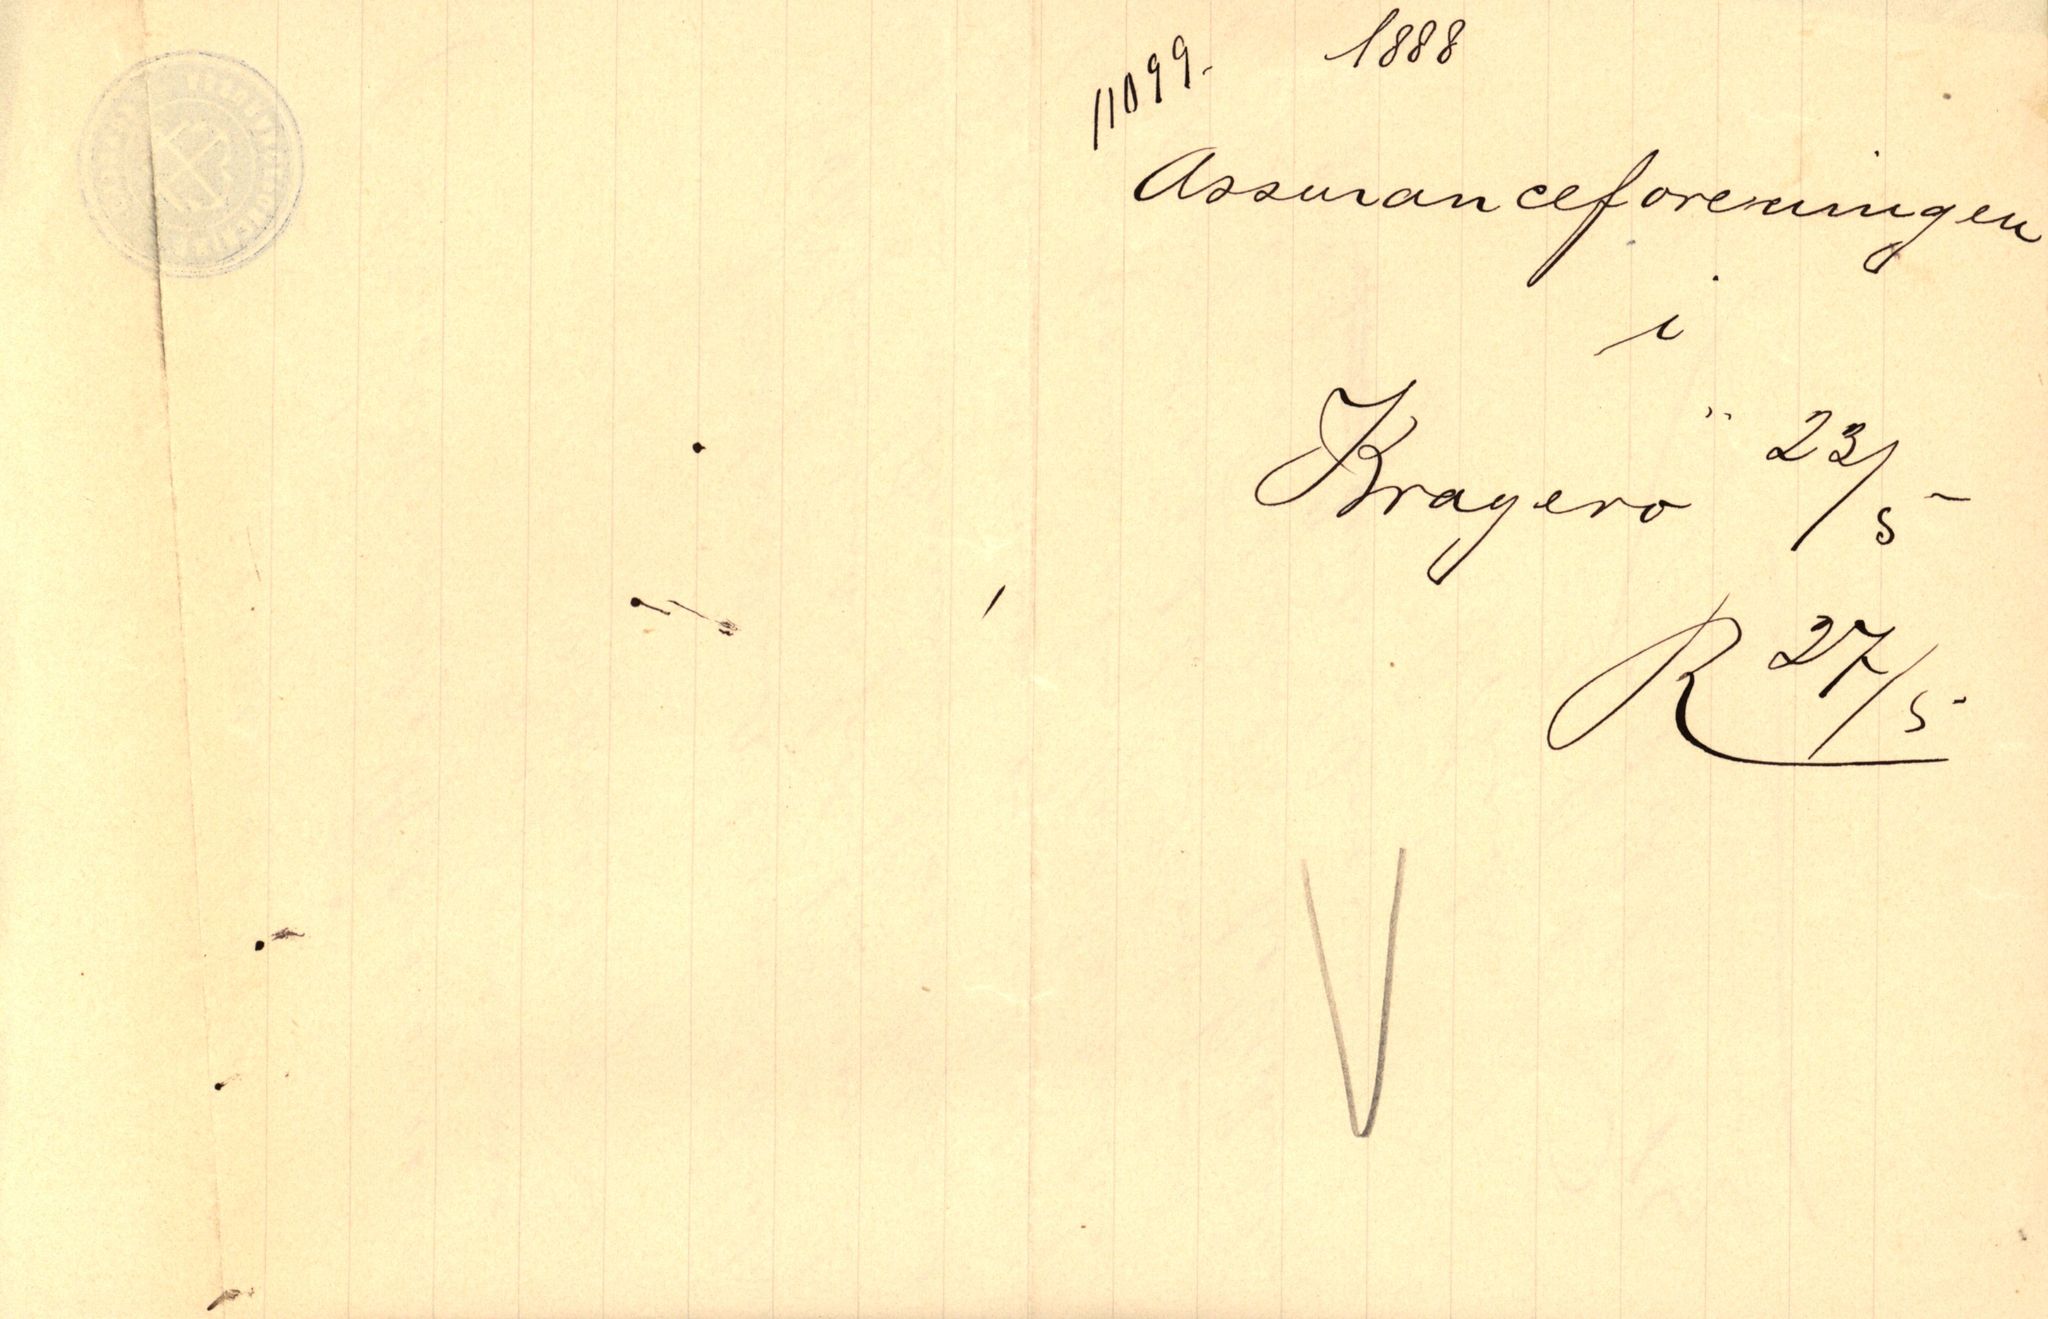 1888
11099.
Assuranceforeningen
i
Kragerö 23/5
R 27/5